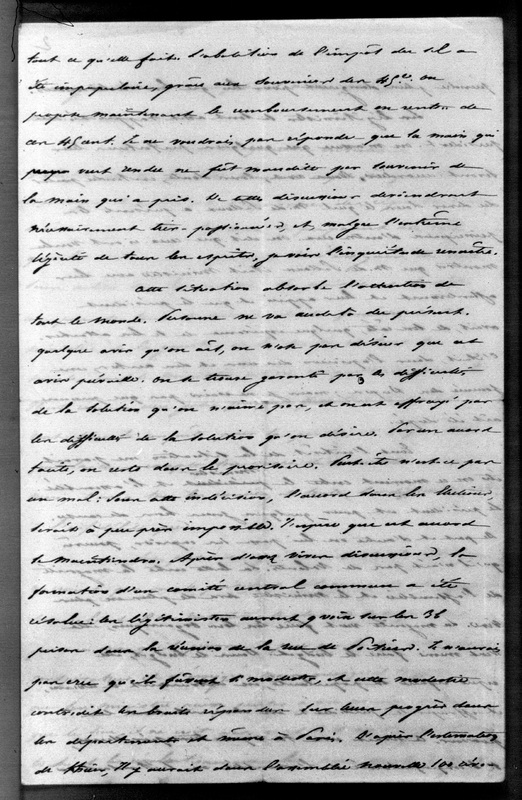 tout ce qu'elle fait. L'abolition de l'impôt du sel a
été impopulaire, grâce aux souvenirs des 45c. on
propose maintenant le remboursement en rentes de
ces 45 cent. Je ne voudrais pas répondre que la main qui
veut rendre ne fût maudite par souvenir de
la main qui a pris. De telles discussions deviendront
nécessairement très passionnées, et, malgré l'extrême
légèreté de tous les esprits, je vois l'inquiétude renaître.
Cette situation absorbe l'attention de
tout le monde. Personne ne va au delà du présent.
quelque avis qu'on ait, on n'ose pas désirer que cet
avis prévaille. On se trouve garanté par les difficultés
de la solution qu'on n'aime pas, et on est effrayé par
les difficultés de la solution qu'on désire. D'un accord
tacite, on reste dans le provisoire. Peut-être n'est-ce pas
un mal: sans cette indécision, l'accord dans les élections
serait à peu près impossible. J'espère que cet accord
se maintiendra. Après d'assez vives discussions, la
formation d'un comité central commun a été
résolue: les légitimistes auront voix sur les 36
prises dans la réunion de la rue de Poitiers. Je n'aurais
pas cru qu'ils fussent si modestes, et cette modestie
contredit les bruits répandus sur leurs progrès dans
les départements et même à Paris. D'après
de Thiers, il y aurait dans l'assemblée nouvelle 100